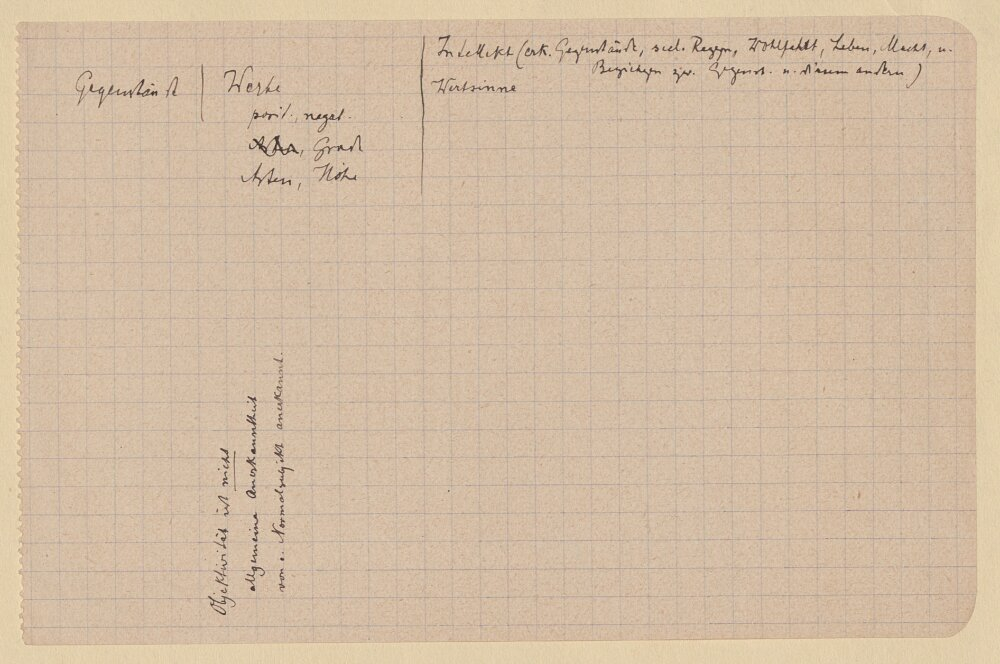 Gegenstände
Werte
posit., negat.
Arten, Grad
Arten, Höhe
Intellekt (erk. Gegenstände, seel. Reggn, Wohlfahrt, Leben, Macht, u.
Beziehgen zw. Gegenst. u. diesem andern)
Wertsinne
Objektivität ist nicht
allgemeine Anerkanntheit
von e. Normalsubjekt anerkannt.